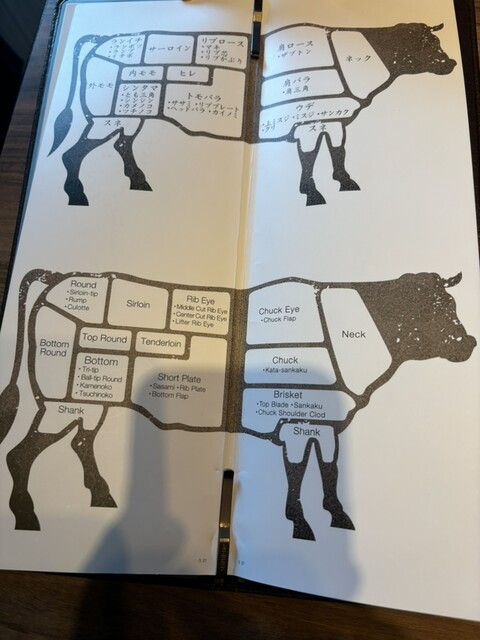 サーロイン
リブロース
・マキ
・リブ芯
・リブかぶり
肩ロース
・ザブトン
ネック
内モモ
ヒレ
外モモ
シンタマ
・とも三角
・シンシン
・カメノコ
トモバラ
・リブプレート
・ヘッドバラ ・カイノミ
肩バラ
・肩三角
ウデ
・ミスジ ・サンカク
スネ
スネ
Round
・Sirloin-tip
・Rump
・Culotte
Sirloin
Rib Eye
・Middle Cut Rib Eye
・Center Cut Rib Eye
・Lifter Rib Eye
Chuck Eye
・Chuck Flap
Neck
Bottom Round
Top Round
Tenderloin
Bottom
・Tri-tip
・Ball-tip Round
・Kamenoko
・Tsuchinoko
Short Plate
・Sasami ・Rib Plate
・Bottom Flap
Chuck
・Kata-sankaku
Brisket
・Top Blade ・Sankaku
・Chuck Shoulder Clod
Shank
Shank